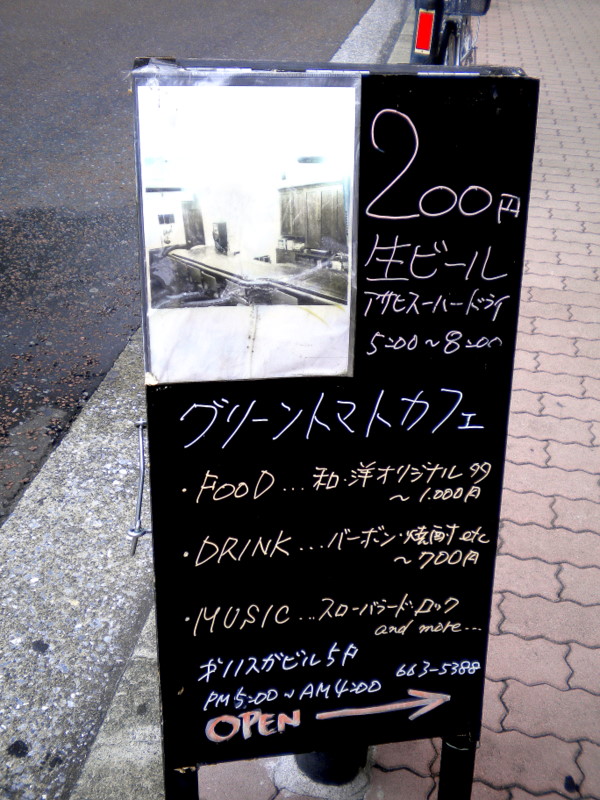 200円
生ビール
アサヒスーパードライ
5:00～8:00
グリーントマトカフェ
・FOOD...和・洋オリジナル99
～1,000円
・DRINK...バーボン・焼酎etc
～700円
・MUSIC...スローバラード・ロック
and more...
ビル5F
663-5388
PM5:00～AM4:00
OPEN